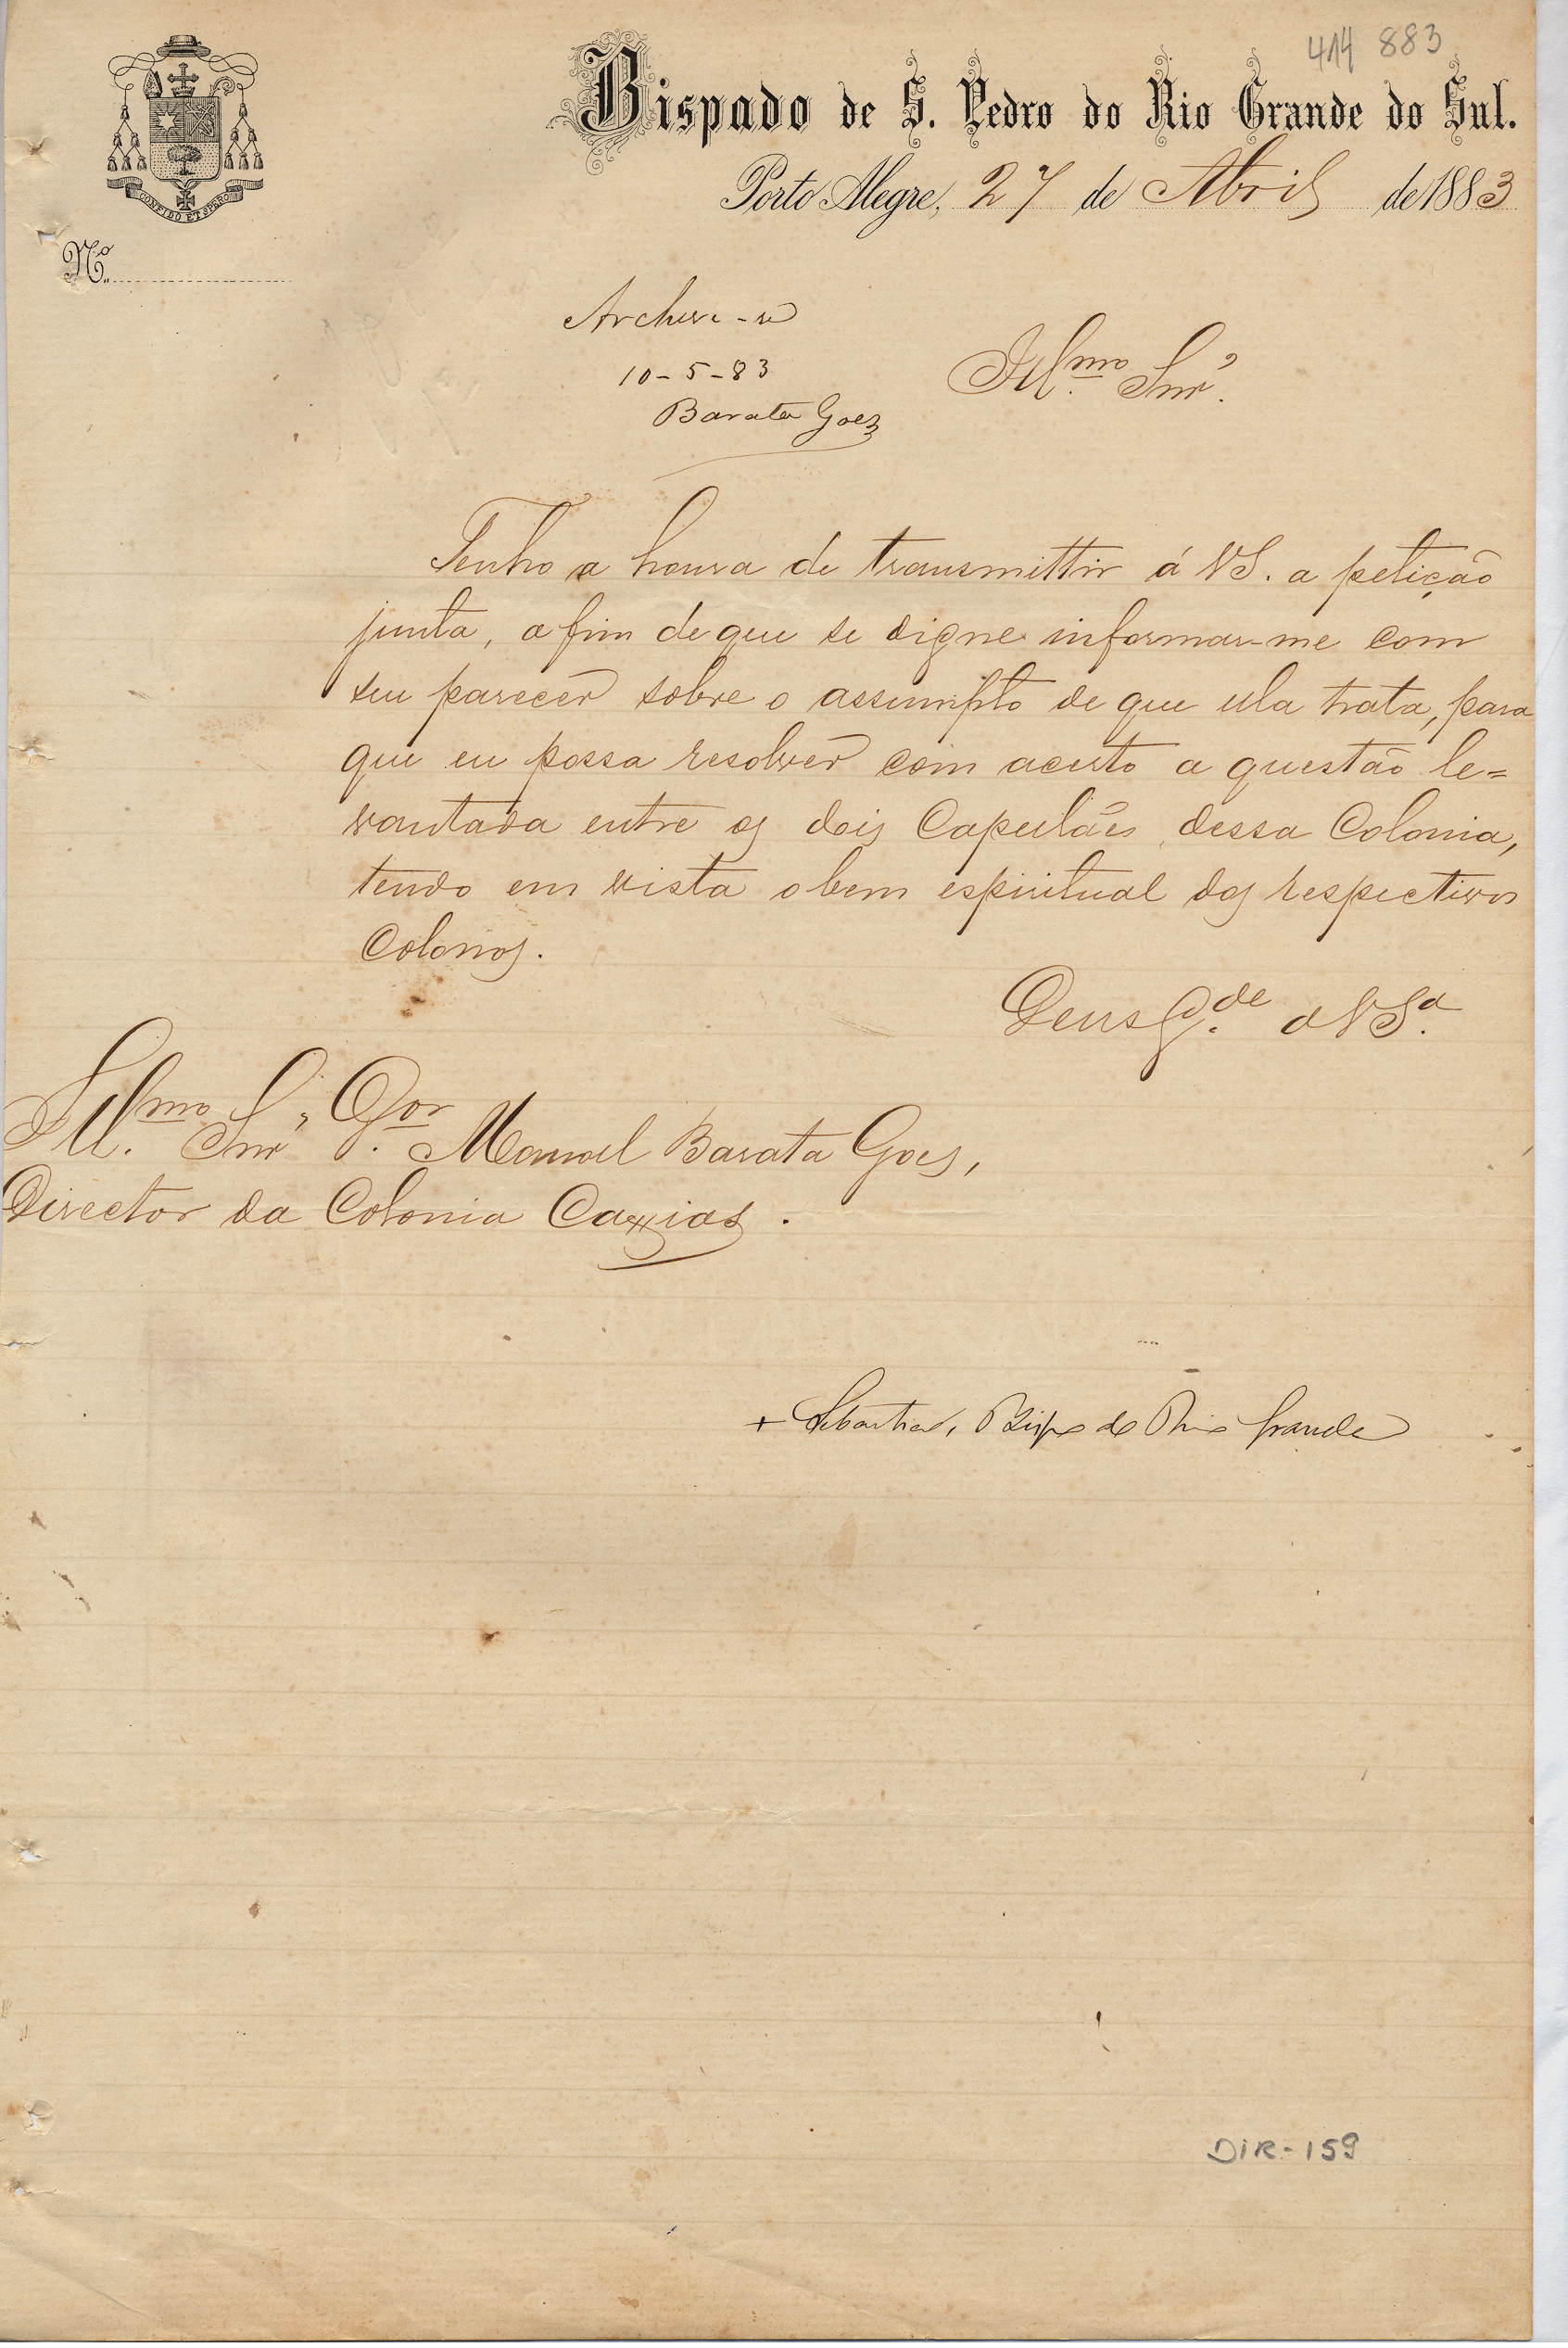 414 883
Bispado de S. Pedro do Rio Grande do Sul.
CONFIDO ET SPERO
Porto Alegre, 27 de Abril de 1883
Nº
Archive-se
10-5-83
Barata Goes
Illmo. Snr.
Tenho a honra de transmittir á VS. a petição
junta, a fim de que se digne informar-me com
seu parecer sobre o assumpto de que ella trata, para
que eu possa resolver com acerto a questão le=
vantada entre os dois Capellães dessa Colonia,
tendo em vista o bem espiritual dos respectivos
Colonos.
Deus G.de a VSa.
Illmo. Snr. Dor. Manoel Barata Goes,
Director da Colonia Caxias.
+ Sebastião, Bispo do Rio Grande
DIR-159